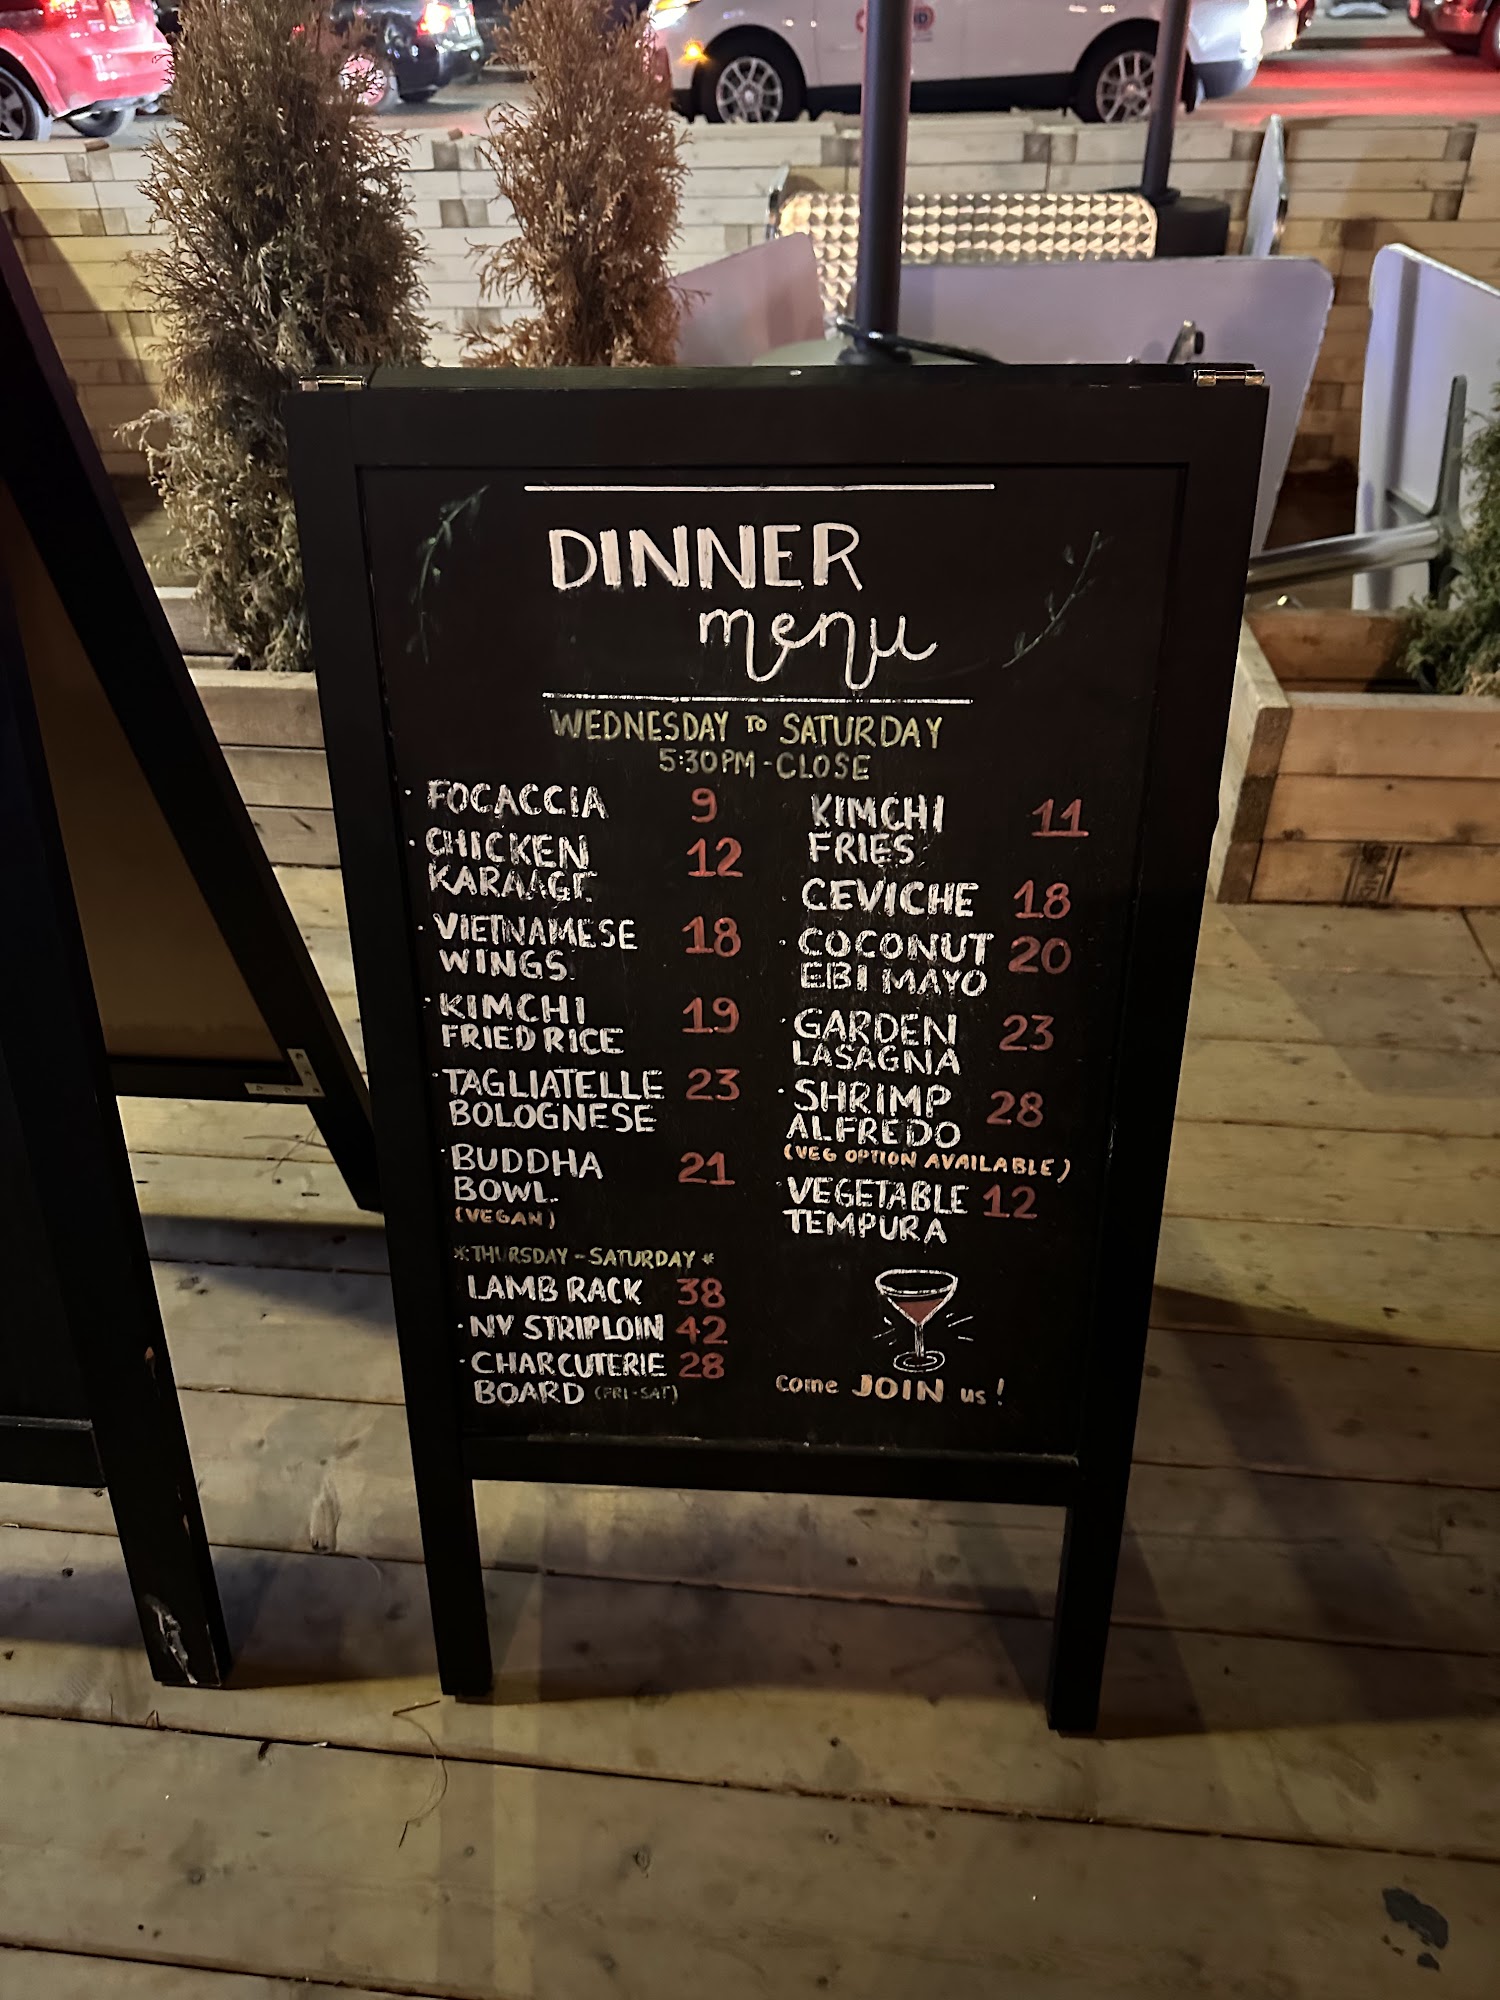 DINNER
menu
WEDNESDAY TO SATURDAY
5:30PM - CLOSE
· FOCACCIA 9
· CHICKEN 12
KARAAGE
· VIETNAMESE 18
WINGS
· KIMCHI 19
FRIED RICE
· TAGLIATELLE 23
BOLOGNESE
· BUDDHA 21
BOWL
(VEGAN)
*THURSDAY - SATURDAY*
LAMB RACK 38
· NY STRIPLOIN 42
· CHARCUTERIE 28
BOARD (FRI-SAT)
KIMCHI 11
FRIES
CEVICHE 18
· COCONUT 20
EBI MAYO
· GARDEN 23
LASAGNA
· SHRIMP 28
ALFREDO
(VEG OPTION AVAILABLE)
· VEGETABLE 12
TEMPURA
Come JOIN us!